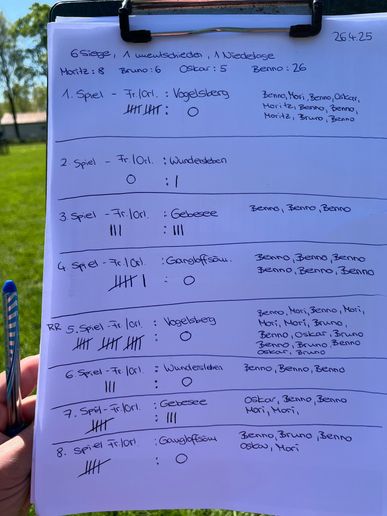 26.4.25
6 Siege, 1 unentschieden, 1 Niederlage
Moritz: 8 Bruno: 6 Oskar: 5 Benno: 26
1. Spiel - Fr/Orl. : Vogelsberg Benno, Mori, Benno, Oskar,
Moritz, Benno, Benno,
Moritz, Bruno, Benno
0
2 Spiel - Fr/Orl. : Wundersleben
0 : I
3 Spiel - Fr/Orl. : Gebesee Benno, Benno, Benno
III : III
4 Spiel - Fr/Orl. : Gangloffsöm. Benno, Benno, Benno
Benno, Benno, Benno
: 0
RR 5. Spiel - Fr/Orl. : Vogelsberg Benno, Mori, Benno, Mori,
Mori, Mori, Bruno,
Benno, Oskar, Bruno
Benno, Bruno, Benno
Oskar, Bruno
: 0
6. Spiel - Fr/Orl. : Wundersleben Benno, Benno, Benno
III : 0
7. Spiel - Fr/Orl. : Gebesee Oskar, Benno, Benno
Mori, Mori,
: III
8. Spiel Fr/Orl. : Gangloffsöm Benno, Bruno, Benno
Oskar, Mori
: 0